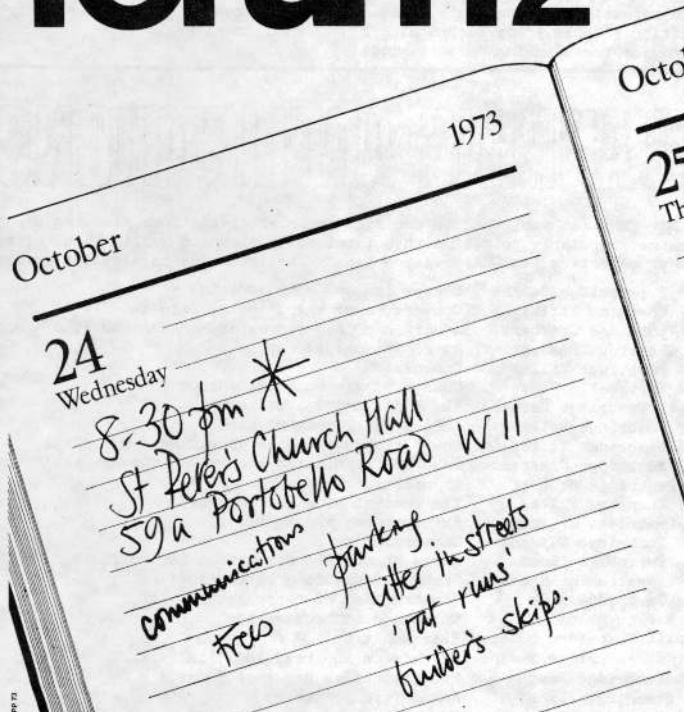 October
1973
24
Wednesday
8.30 pm *
St Peter's Church Hall
59a Portobello Road W11
communications
Trees
parking.
litter in streets
'rat runs'
builder's skips.
Octo
2
Th
PP 73